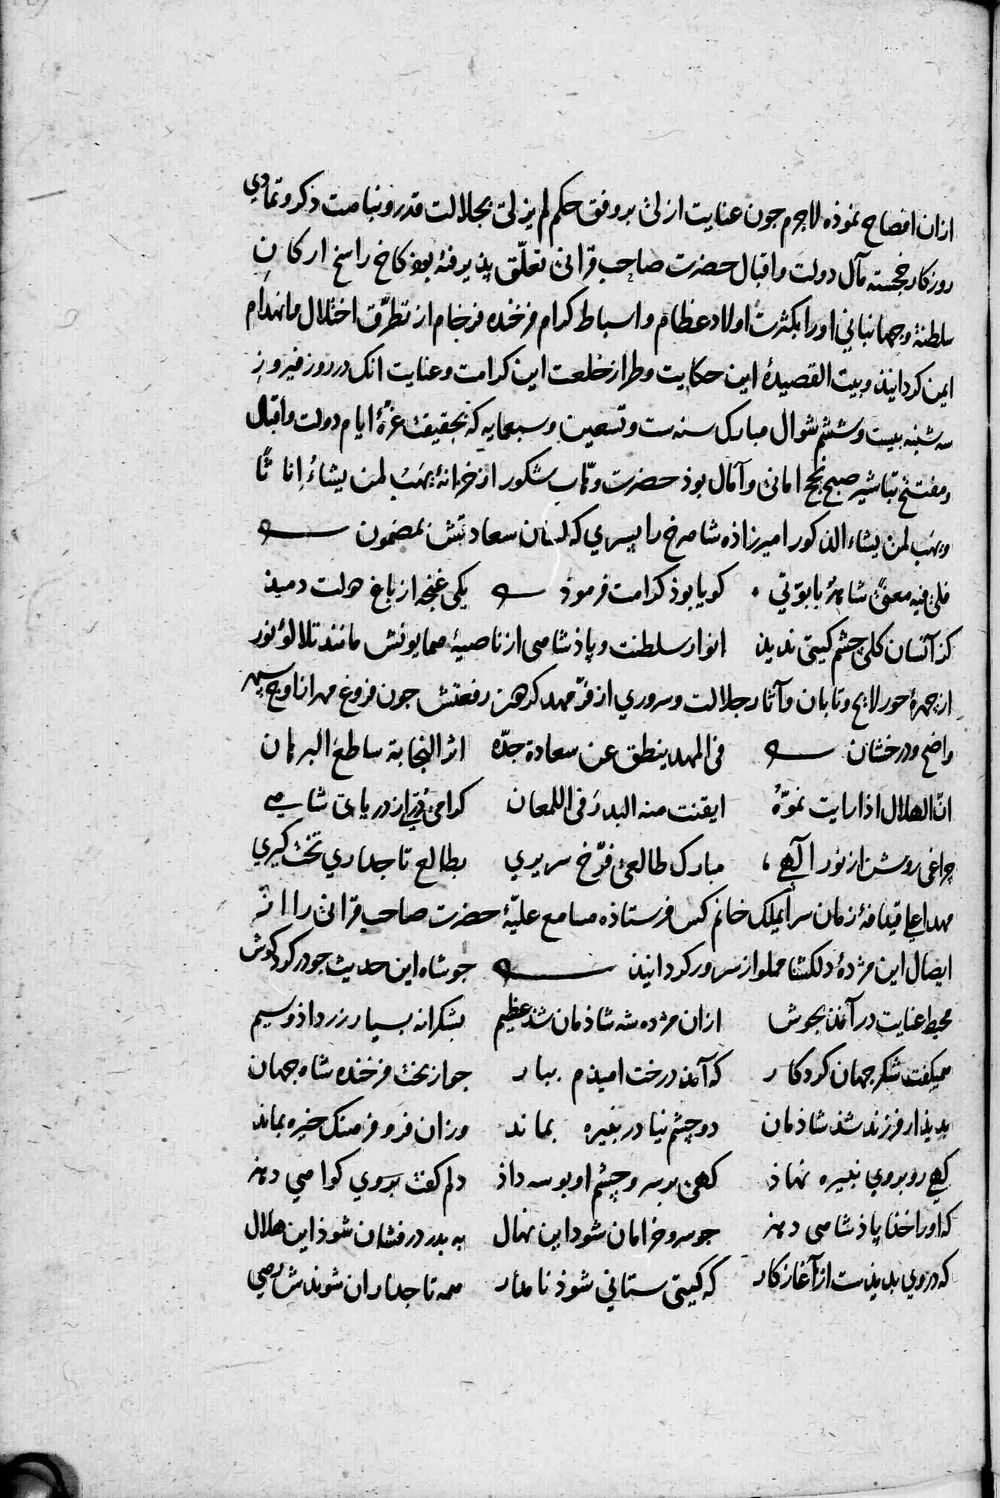 ازان افصاح نموذه لاجرم جون عنایت ازلی بر وفق حکم لم یزلی بجلالت قدر و نباهت ذکر و تمادی
روزکار خجسته مآل دولت و اقبال حضرت صاحب قرانی تعلّق پذیرفته بوذ کاخ راسخ ارکان
سلطنة و جهانبانی اورا بکثرت اولاد عظام و اسباط کرام فرخنده فرجام از تطرّق اختلال و انهدام
ایمن کردانیذ و بیت القصیدهٔ این حکایت و طراز خلعت این کرامت و عنایت انک در روز فیروز
سه شنبه بیست و ششم شوال مبارک سنه ست و تسعین و سبعمایه که بحقیقت غرّهٔ ایام دولت و اقبال
و مفتتح تباشیر صبح نجح امانی و آمال بوذ حضرت وهّاب شکور از خزانهٔ یهب لمن یشاءُ إناثًا
ویهب لمن یشاء الذکور امیرزاذه شاهرخ را پسری که لسان سعادتش بمضمون
فلی فیه معنیً شاهدٌ بابوّتی کویا بوذ کرامت فرموذ یکی غنجه از باغ دولت دمیذ
کز آنسان کلی جشم کیتی ندیذ انوار سلطنت و پاذشاهی از ناصیهٔ همایونش مانند تلالؤ نور
از جهرهٔ حور لایح و تابان و آثار جلالت و سروری از فرّ مهد کردون رفعتش جون فروغ مهر از اوج سپهر
واضح و درخشان فی المهد ینطق عن سعادة جدّه اثر النجابة ساطع البرهان
انّ الهلال اذا رایت نموّهُ ایقنت منه البدرَ فی اللمعان کرامی دُرّی از دریای شاهی
جراغی روشن از نور الٰهی مبارک طالعی فرّخ سریری بطالع تاجداری تخت کیری
مهد اعلی قیدافهٔ زمان سرایملک خانم کس فرستاذه مسامع علیّهٔ حضرت صاحب قرانی را از
ایصال این مژدهٔ دلکشا مملو از سرور کردانیذ جو شاه این حدیث جو در کرد کوش
محیط عنایت درآمذ بجوش ازان مژده شه شاذمان شذ عظیم بشکرانه بسیار زر داذ و سیم
همیکفت شکر جهان کردکار که آمذ درخت امیذم ببار جو از بخت فرخنده شاه جهان
بدیذار فرزند شذ شاذمان دو جشم نیا در نبیره بماند وزان فر و فرهنک خیره بماند
کهی رو بروی نبیره نهاذ کهی بر سر و جشم او بوسه داذ دلم کفت بروی کواهی دهذ
که اورا خذا پاذشاهی دهذ جو سرو خرامان شود این نهال به بدر درفشان شوذ این هلال
که در وی بدیذست از آغاز کار که کیتی ستانی شوذ نامدار همه تاجداران شوندش رهی